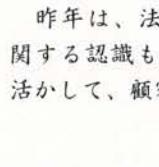 昨年は、法
関する認識も
活かして、顧